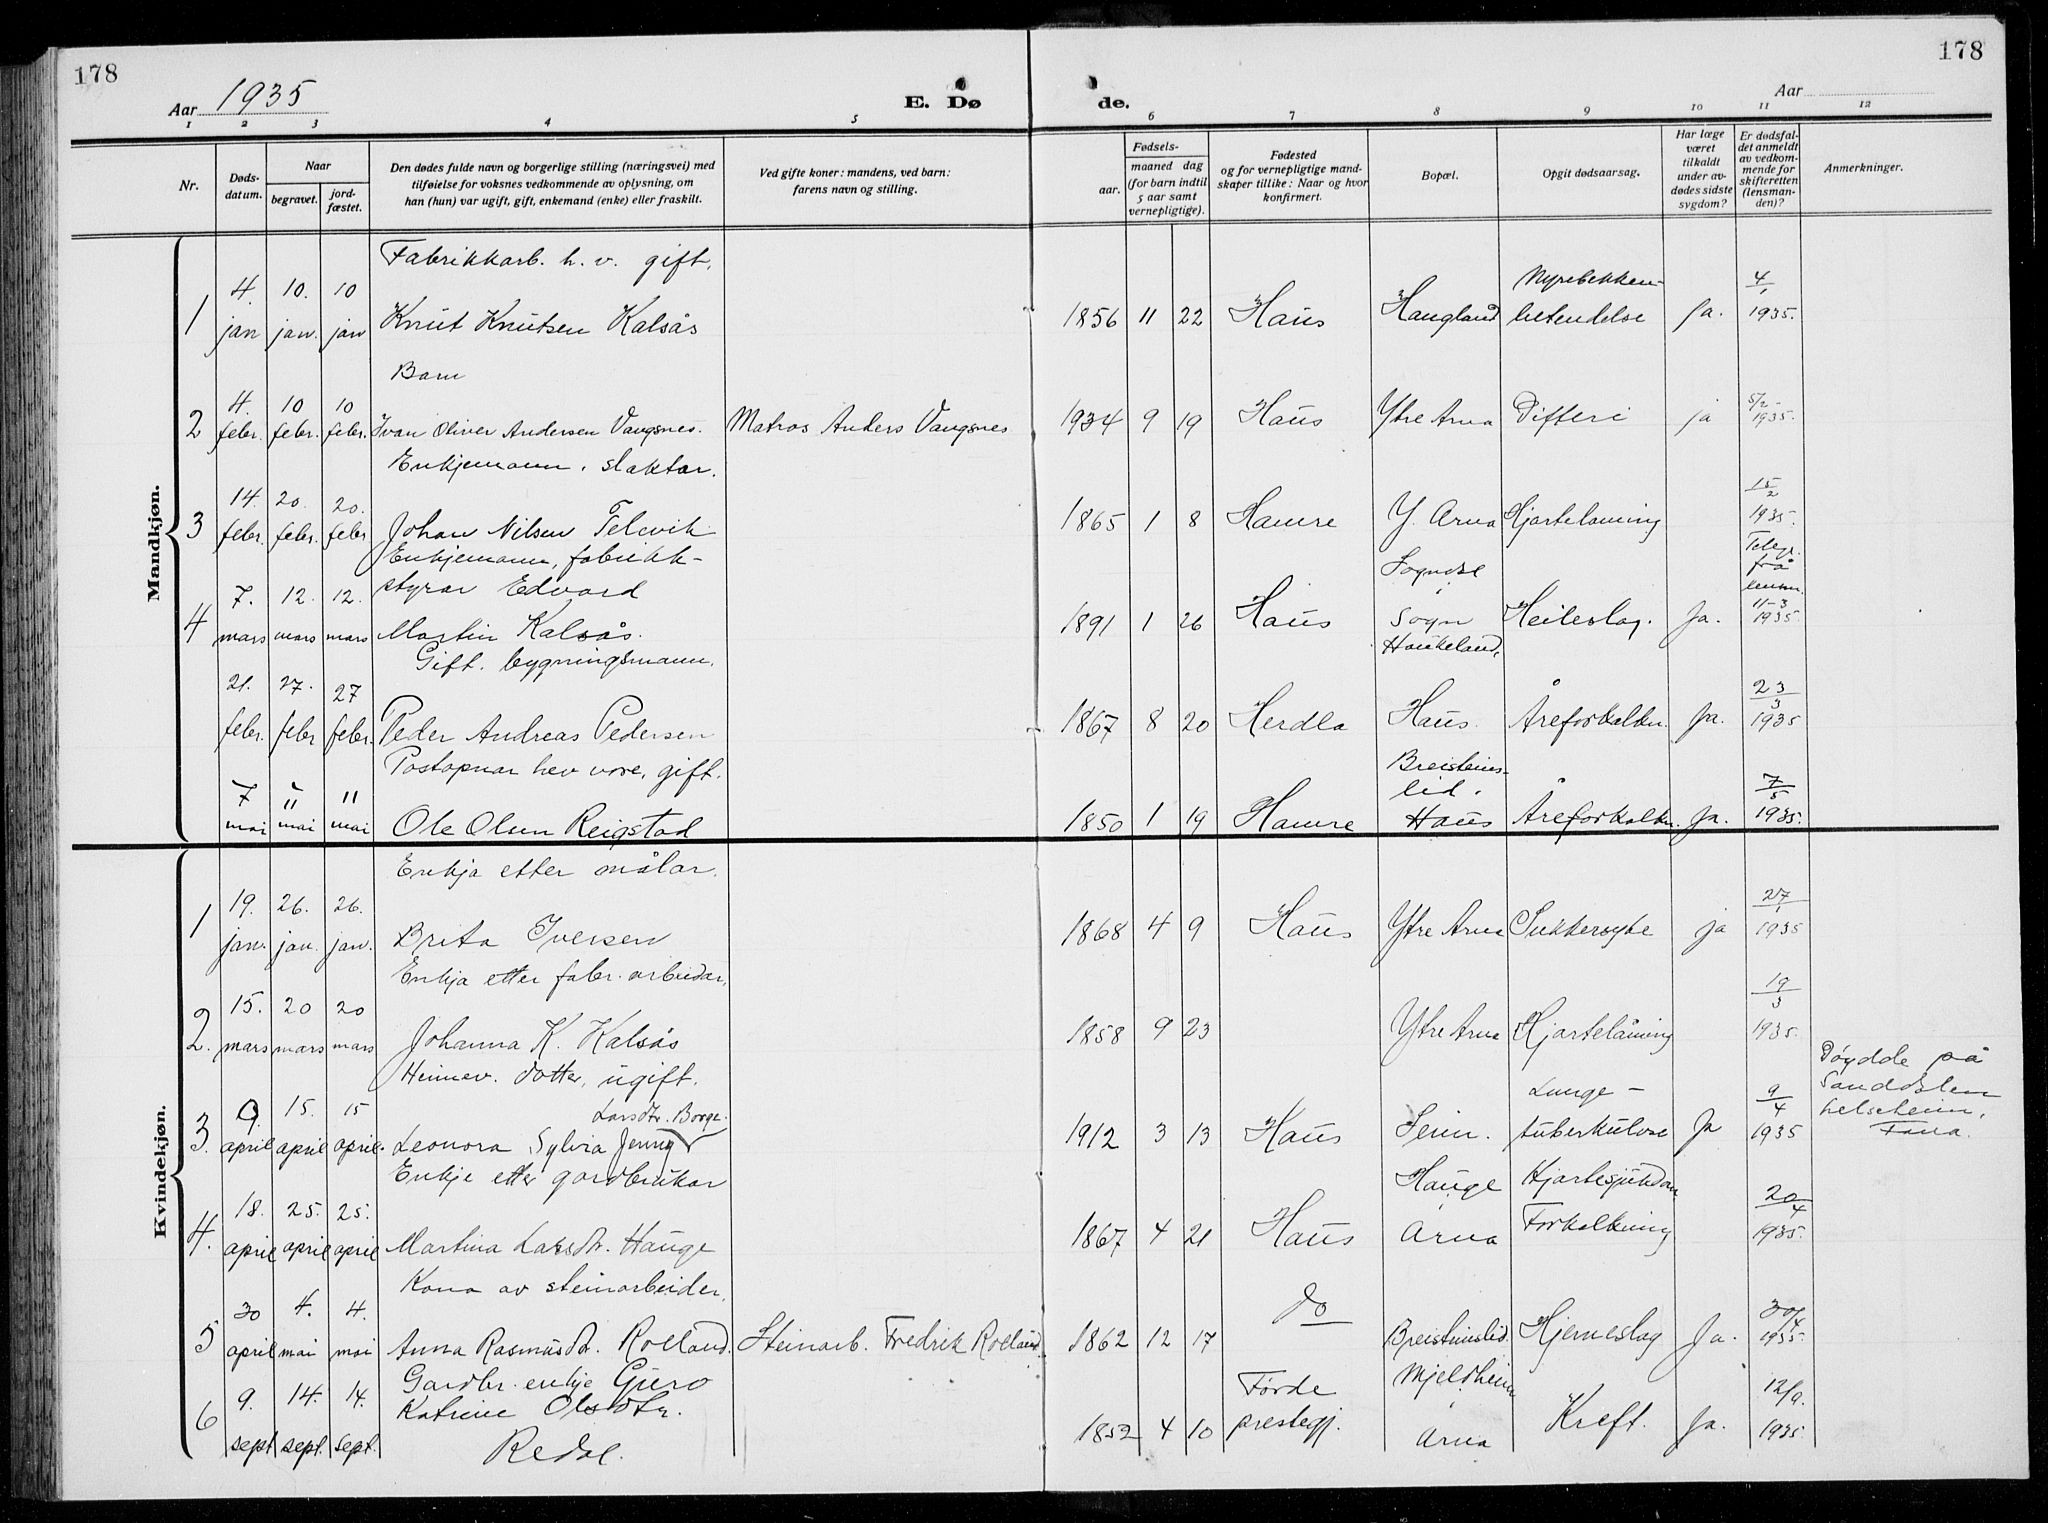 178
178
Aar 1935
E. Dø
de.
Aar
1 2 3 4 5 6 7 8 9 10 11 12
Nr.
Døds-
datum.
Naar
begravet.
jord-
fæstet.
Den dødes fulde navn og borgerlige stilling (næringsvei) med
tilføielse for voksnes vedkommende av oplysning, om
han (hun) var ugift, gift, enkemand (enke) eller fraskilt.
Ved gifte koner: mandens, ved barn:
farens navn og stilling.
Fødsels-
aar.
maaned dag
(for barn indtil
5 aar samt
vernepligtige).
Fødested
og for vernepligtige mand-
skaper tillike: Naar og hvor
konfirmert.
Bopæl.
Opgit dødsaarsag.
Har læge
været
tilkaldt
under av-
dødes sidste
sygdom?
Er dødsfal-
det anmeldt
av vedkom-
mende for
skifteretten
(lensman-
den)?
Anmerkninger.
Mandkjøn.
Fabrikkarb. h. v. gift.
4. 10. 10 Nyrebekken- 4/1
1 jan jan. jan Knut Knutsen Kalsås 1856 11 22 Haus Haugland betendelse Ja. 1935.
Barn
4. 10 10 5/2-
2 febr. febr. febr. Ivan Oliver Andersen Vangsnes. Matros Anders Vangsnes 1934 9 19 Haus Ytre Arna Difteri ja 1935.
Enkjemann, slaktar.
14. 20. 20. 15/2
3 febr. febr. febr Johan Nilsen Televik 1865 1 8 Hamre Y. Arna Hjartelaming 1935.
Enkjemann, fabrikk- Sogndal Telegr. frå
7. 12. 12. styrar Edvard i 11-3
4 mars mars mars Martin Kalsås. 1891 1 26 Haus Sogn Heileslag. Ja. 1935
Gift. bygningsmann. Haukeland,
21. 27. 27 23/3
febr. febr febr. Peder Andreas Pedersen 1867 8 20 Herdla Haus. Åreforkalkn. Ja. 1935
Postopnar hev vore, gift. Breisteins-
7 11 11 lid. 7/5
mai mai mai Ole Olsen Reigstad 1850 1 19 Hamre Haus Åreforkalkn. Ja. 1935.
Kvindekjøn.
Enkja etter målar.
19. 26. 26. 27/1
1 jan. jan. jan. Brita Iversen 1868 4 9 Haus Ytre Arna Sukkersyke ja 1935
Enkja etter fabr. arbeidar,
15. 20 20 19/3
2. mars mars mars Johanna K. Kalsås 1858 9 23 Ytre Arna Hjartelåming 1935.
Heimev. dotter, ugift. Lunge- Døydde på
9. 15. 15 Larsdtr. Borge. 9/4
3. april april april. Leonora Sylvia Jenny 1912 3 13 Haus Seim. tuberkulose Ja 1935 helseheim, Fana.
Enkje etter gardbrukar Hauge Hjartesjukdom
18. 25. 25. 20/4
4. april april april Martina Larsdtr. Hauge 1867 4 21 Haus Arna Forkalkning 1935.
Kona av steinarbeider.
30 4. 4. do 30/4
5 april mai mai Anna Rasmusdtr. Rolland. Steinarb. Fredrik Rolland 1862 12 17 Breisteinslid. Hjerneslag Ja. 1935.
Gardbr. enkje Guro Førde Mjeldheim
9. 14. 14. Katrine Olsdtr. 12/9.
6 sept sept. Sept. Redal. 1852 4 10 prestegj. Arna Kreft. Ja. 1935.